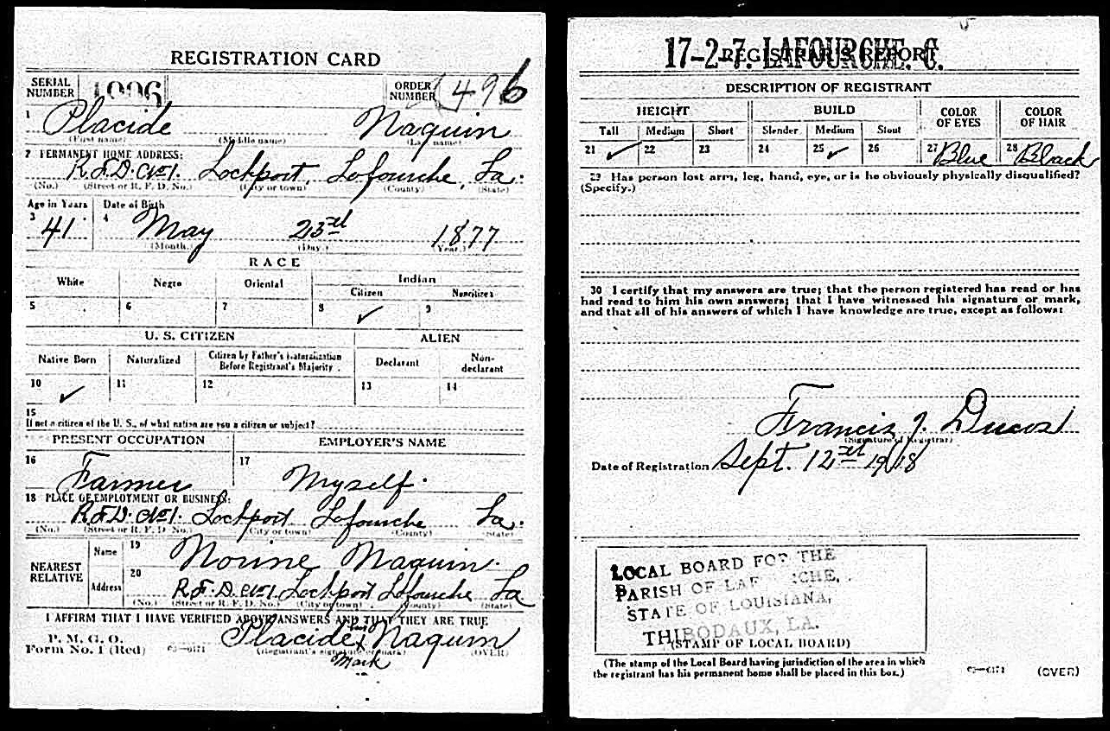 REGISTRATION CARD
SERIAL NUMBER 1996 ORDER NUMBER 496
1 Placide Naquin
(First name) (Middle name) (Last name)
2 PERMANENT HOME ADDRESS:
R.F.D. No 1. Lockport, Lafourche, La.
(No.) (Street or R. F. D. No.) (City or town) (County) (State)
Age in Years Date of Birth
3 41 4 May 23rd 1877
(Month.) (Day.) (Year.)
RACE
White Negro Oriental Indian
Citizen Noncitizen
5 6 7 8 ✓ 9
U. S. CITIZEN ALIEN
Native Born Naturalized Citizen by Father's Naturalization Before Registrant's Majority Declarant Non-declarant
10 ✓ 11 12 13 14
15
If not a citizen of the U. S., of what nation are you a citizen or subject?
PRESENT OCCUPATION EMPLOYER'S NAME
16 Farmer 17 Myself.
18 PLACE OF EMPLOYMENT OR BUSINESS:
R.F.D. No 1. Lockport Lafourche La.
(No.) (Street or R. F. D. No.) (City or town) (County) (State)
NEAREST RELATIVE
Name 19 Norine Naquin.
Address 20 R.F.D. No 1. Lockport Lafourche La
(No.) (Street or R. F. D. No.) (City or town) (County) (State)
I AFFIRM THAT I HAVE VERIFIED ABOVE ANSWERS AND THAT THEY ARE TRUE
P. M. G. O.
Form No. 1 (Red) Placide his x Naquin
(Registrant's signature or mark) (OVER)
Mark
17-2-7. LAFOURCHE. C.
REGISTRAR'S REPORT
DESCRIPTION OF REGISTRANT
HEIGHT BUILD COLOR OF EYES COLOR OF HAIR
Tall Medium Short Slender Medium Stout
21 ✓ 22 23 24 25 ✓ 26 27 Blue 28 Black
29 Has person lost arm, leg, hand, eye, or is he obviously physically disqualified?
(Specify.)
30 I certify that my answers are true; that the person registered has read or has
had read to him his own answers; that I have witnessed his signature or mark,
and that all of his answers of which I have knowledge are true, except as follows:
Francis J. Ducos
(Signature of Registrar)
Date of Registration Sept. 12th 1918
LOCAL BOARD FOR THE
PARISH OF LAFOURCHE,
STATE OF LOUISIANA,
THIBODAUX, LA.
(STAMP OF LOCAL BOARD)
(The stamp of the Local Board having jurisdiction of the area in which
the registrant has his permanent home shall be placed in this box.)
(OVER)